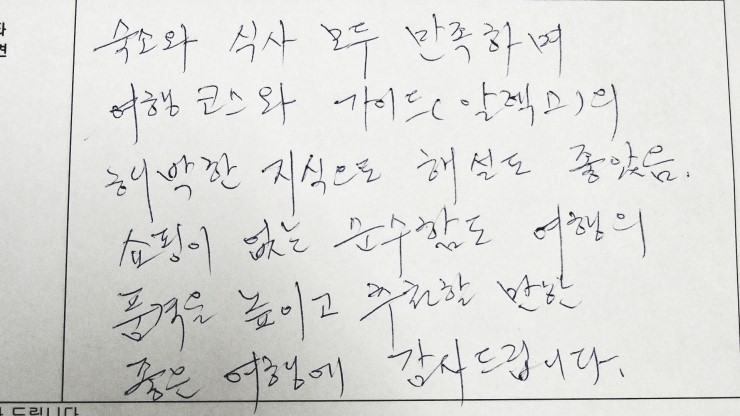 숙소와 식사 모두 만족하며
여행 코스와 가이드(알렉스)의
해박한 지식으로 해설도 좋았음.
쇼핑이 없는 순수함도 여행의
품격을 높이고 추천할 만한
좋은 여행에 감사드립니다.
드립니다